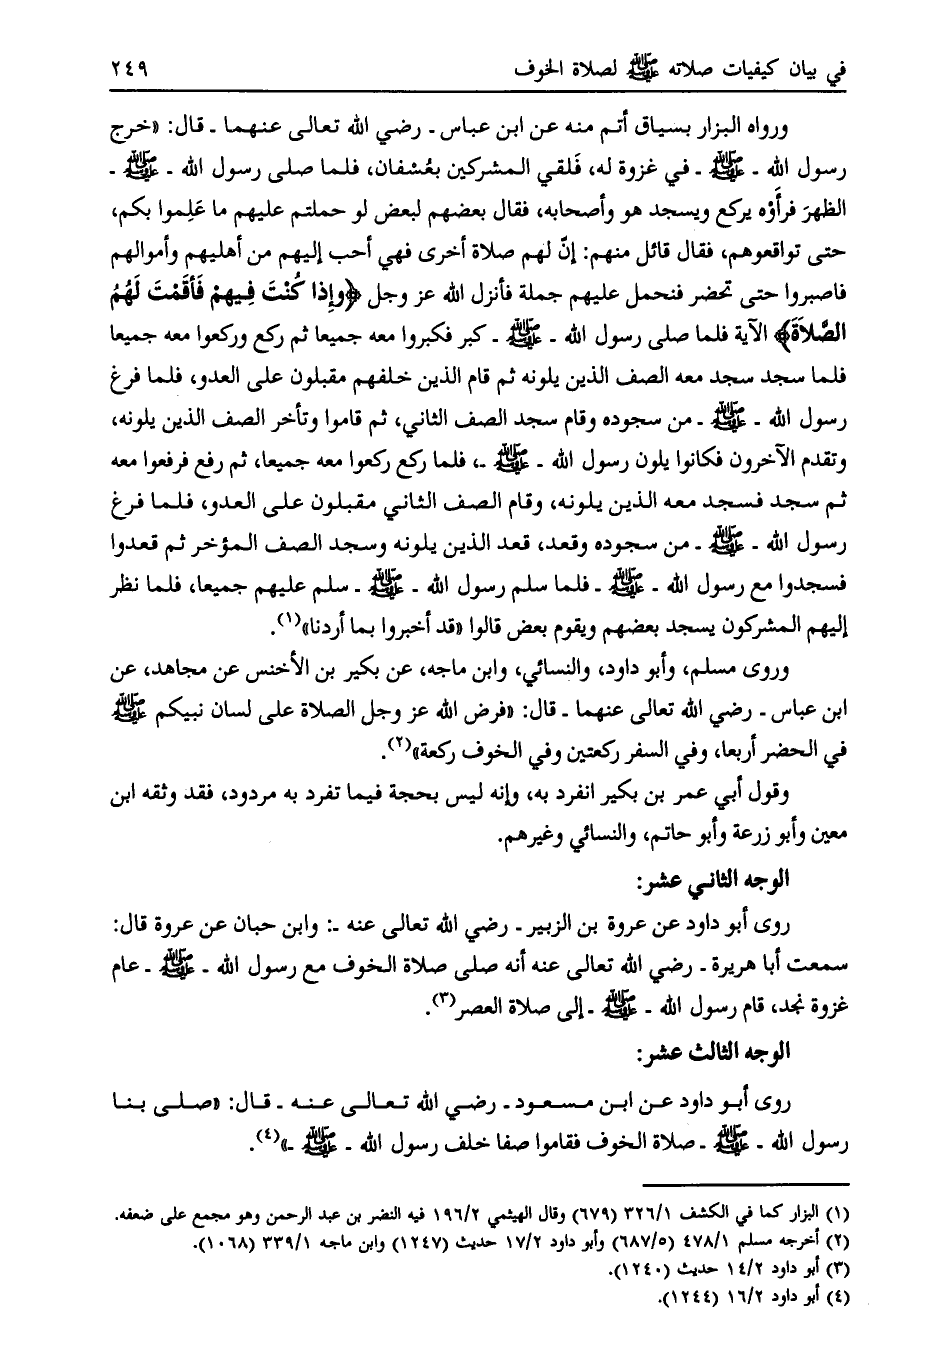 في بيان كيفيات صلاته ﷺ لصلاة الخوف ٢٤٩
ورواه البزار بسياق أتم منه عن ابن عباس ـ رضي الله تعالى عنهما ـ قال: «خرج
رسول الله ـ ﷺ ـ في غزوة له، فَلقي المشركين بعُسْفان، فلما صلى رسول الله ـ ﷺ ـ
الظهرَ فرأَوْه يركع ويسجد هو وأصحابه، فقال بعضهم لبعض لو حملتم عليهم ما عَلِموا بكم،
حتى تواقعوهم، فقال قائل منهم: إنّ لهم صلاة أخرى فهي أحب إليهم من أهليهم وأموالهم
فاصبروا حتى تحضر فنحمل عليهم جملة فأنزل الله عز وجل ﴿وإِذا كُنْتَ فِيهِمْ فَأَقَمْتَ لَهُمُ
الصَّلاَةَ﴾ الآية فلما صلى رسول الله ـ ﷺ ـ كبر فكبروا معه جميعا ثم ركع وركعوا معه جميعا
فلما سجد سجد معه الصف الذين يلونه ثم قام الذين خلفهم مقبلون على العدو، فلما فرغ
رسول الله ـ ﷺ ـ من سجوده وقام سجد الصف الثاني، ثم قاموا وتأخر الصف الذين يلونه،
وتقدم الآخرون فكانوا يلون رسول الله ـ ﷺ ـ، فلما ركع ركعوا معه جميعا، ثم رفع فرفعوا معه
ثم سجد فسجد معه الذين يلونه، وقام الصف الثاني مقبلون على العدو، فلما فرغ
رسول الله ـ ﷺ ـ من سجوده وقعد، قعد الذين يلونه وسجد الصف المؤخر ثم قعدوا
فسجدوا مع رسول الله ـ ﷺ ـ فلما سلم رسول الله ـ ﷺ ـ سلم عليهم جميعا، فلما نظر
إليهم المشركون يسجد بعضهم ويقوم بعض قالوا «قد أخبروا بما أردنا»(١).
وروى مسلم، وأبو داود، والنسائي، وابن ماجه، عن بكير بن الأخنس عن مجاهد، عن
ابن عباس ـ رضي الله تعالى عنهما ـ قال: «فرض الله عز وجل الصلاة على لسان نبيكم ﷺ
في الحضر أربعا، وفي السفر ركعتين وفي الخوف ركعة»(٢).
وقول أبي عمر بن بكير انفرد به، وإنه ليس بحجة فيما تفرد به مردود، فقد وثقه ابن
معين وأبو زرعة وأبو حاتم، والنسائي وغيرهم.
الوجه الثاني عشر:
روى أبو داود عن عروة بن الزبير ـ رضي الله تعالى عنه ـ: وابن حبان عن عروة قال:
سمعت أبا هريرة ـ رضي الله تعالى عنه أنه صلى صلاة الخوف مع رسول الله ـ ﷺ ـ عام
غزوة نجد، قام رسول الله ـ ﷺ ـ إلى صلاة العصر(٣).
الوجه الثالث عشر:
روى أبو داود عن ابن مسعود ـ رضي الله تعالى عنه ـ قال: «صلى بنا
رسول الله ـ ﷺ ـ صلاة الخوف فقاموا صفا خلف رسول الله ـ ﷺ ـ»(٤).
(١) البزار كما في الكشف ٣٢٦/١ (٦٧٩) وقال الهيثمي ١٩٦/٢ فيه النضر بن عبد الرحمن وهو مجمع على ضعفه.
(٢) أخرجه مسلم ٤٧٨/١ (٦٨٧/٥) وأبو داود ١٧/٢ حديث (١٢٤٧) وابن ماجه ٣٣٩/١ (١٠٦٨).
(٣) أبو داود ١٤/٢ حديث (١٢٤٠).
(٤) أبو داود ١٦/٢ (١٢٤٤).